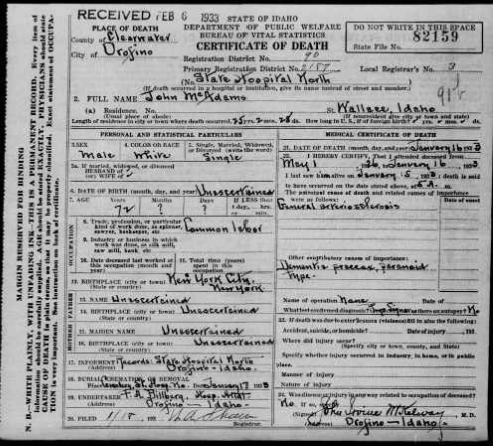 RECEIVED FEB 6 1933 STATE OF IDAHO
PLACE OF DEATH
DEPARTMENT OF PUBLIC WELFARE
BUREAU OF VITAL STATISTICS
CERTIFICATE OF DEATH
DO NOT WRITE IN THIS SPACE
State File No. 82159
County of Clearwater
City of Orofino
Registration District No. 90
Primary Registration District No. 2187
Local Registrar's No. 3
(No. State Hospital North
(If death occurred in a hospital or institution, give its name instead of street and number.)
2. FULL NAME John McAdams
(a) Residence. No. St. Wallace, Idaho
(Usual place of abode)
(If nonresident give city or town and state)
Length of residence in city or town where death occurred
PERSONAL AND STATISTICAL PARTICULARS
MEDICAL CERTIFICATE OF DEATH
3. SEX Male
4. COLOR OR RACE White
5. Single, Married, Widowed, or Divorced (write the word) Single
21. DATE OF DEATH (month, day, and year) January 16 1933
22. I HEREBY CERTIFY, That I attended deceased from
May 1, January 16, 1933
I last saw him alive on January 15, 1933, death is said
to have occurred on the date stated above, at
The principal cause of death and related causes of importance
were as follows:
General arteriosclerosis
5a. If married, widowed, or divorced
HUSBAND of
(or) WIFE of
6. DATE OF BIRTH (month, day, and year) Unascertained
7. AGE 72 ? ?
If LESS than
1 day, hrs.
or min.
OCCUPATION
8. Trade, profession, or particular
kind of work done, as spinner,
sawyer, bookkeeper, etc. Common labor
9. Industry or business in which
work was done, as silk mill,
saw mill, bank, etc.
10. Date deceased last worked at
this occupation (month and
year)
11. Total time (years)
spent in this
occupation
Other contributory causes of importance:
Dementia praecox, paranoid
type.
12. BIRTHPLACE (city or town) New York City,
(State or country) New York
13. NAME Unascertained
14. BIRTHPLACE (city or town) Unascertained
(State or country)
15. MAIDEN NAME Unascertained
16. BIRTHPLACE (city or town) Unascertained
(State or country)
FATHER
MOTHER
Name of operation None Date of
What test confirmed diagnosis? Was there an autopsy? No
23. If death was due to external causes (violence) fill in also the following:
Accident, suicide, or homicide? Date of injury , 193
Where did injury occur?
(Specify city or town, county, and State)
Specify whether injury occurred in industry, in home, or in public
place.
Manner of injury
Nature of injury
17. INFORMANT Records: State Hospital North
(Address) Orofino - Idaho.
18. BURIAL, CREMATION, OR REMOVAL
Date January 17 1933
19. UNDERTAKER
(Address) Orofino - Idaho
20. FILED 1/18, 193
No.
(Signed) M.D.
(Address) Orofino - Idaho
MARGIN RESERVED FOR BINDING
N. B.—WRITE PLAINLY, WITH UNFADING INK—THIS IS A PERMANENT RECORD. Every item of
information should be carefully supplied. AGE should be stated EXACTLY. PHYSICIANS should state
CAUSE OF DEATH in plain terms, so that it may be properly classified. Exact statement of OCCUPA-
TION is very important. See instructions on back of certificate.